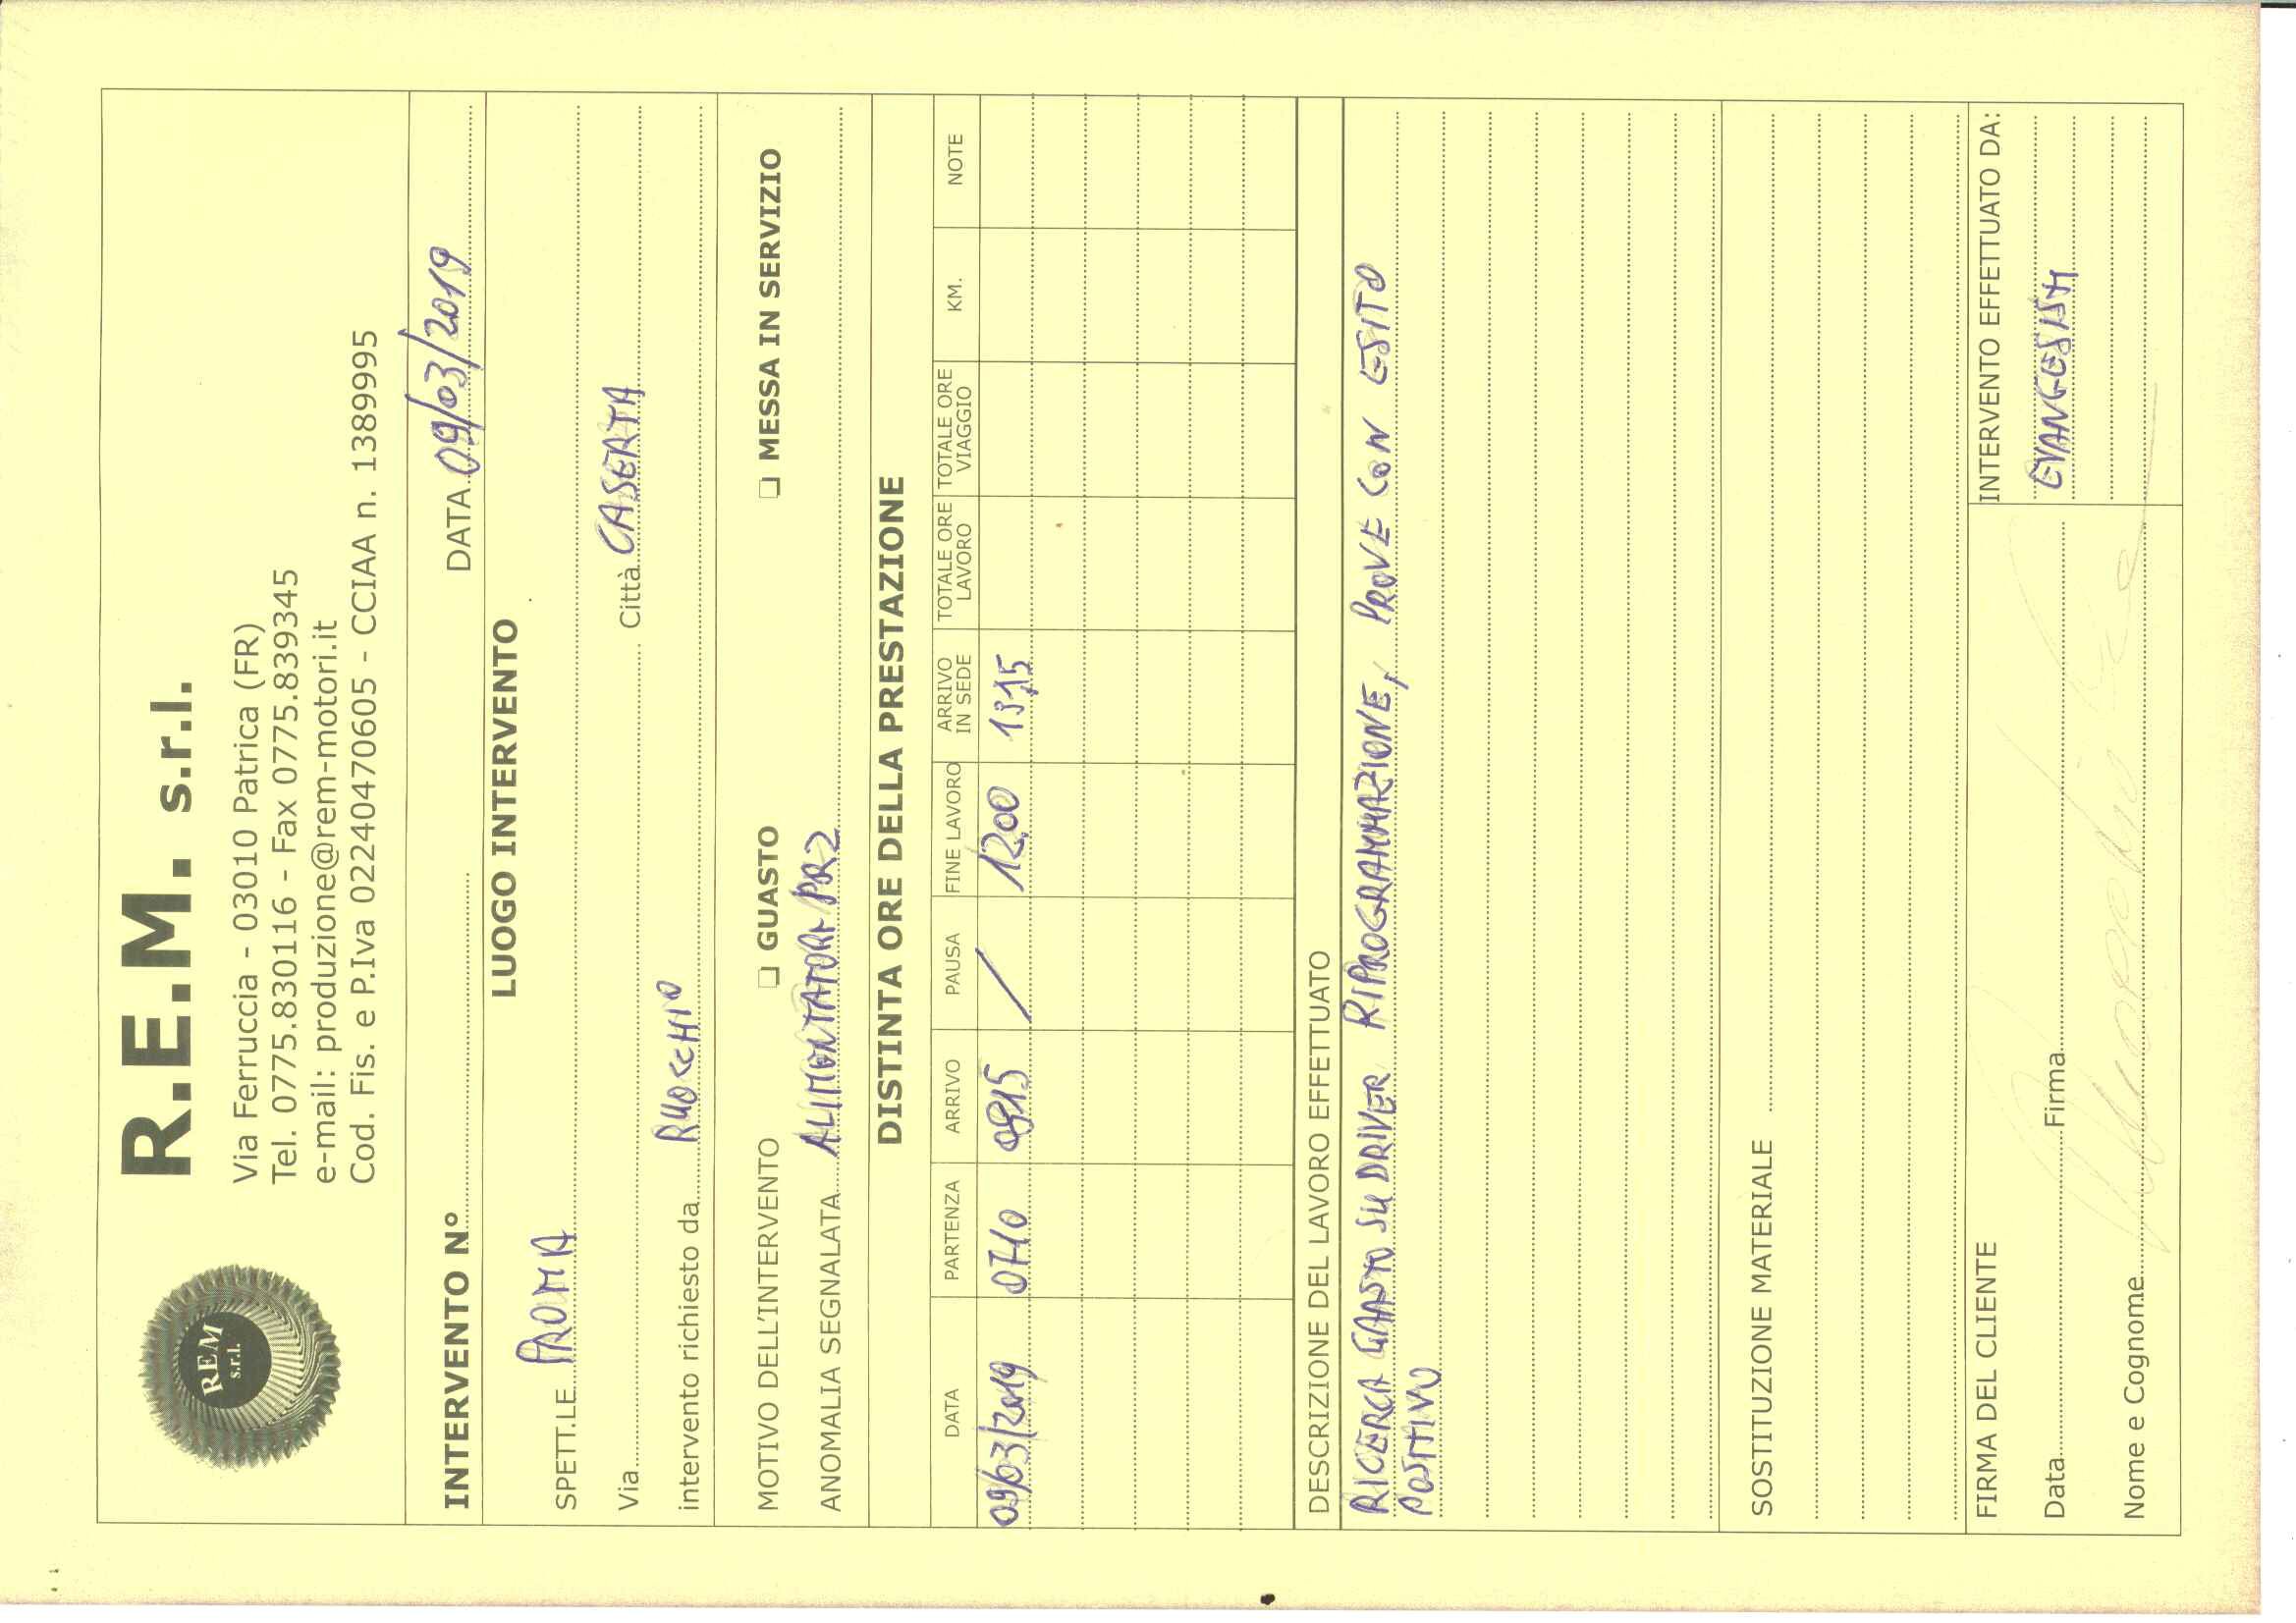 REM
s.r.l.
R.E.M. s.r.l.
Via Ferruccia - 03010 Patrica (FR)
Tel. 0775.830116 - Fax 0775.839345
e-mail: produzione@rem-motori.it
Cod. Fis. e P.Iva 02240470605 - CCIAA n. 1389995
INTERVENTO N° DATA 09/03/2019
LUOGO INTERVENTO
SPETT.LE PROMA
Via Città CASERTA
intervento richiesto da RUOCCHIO
MOTIVO DELL'INTERVENTO ❏ GUASTO ❏ MESSA IN SERVIZIO
ANOMALIA SEGNALATA ALIMENTATORI PR2
DISTINTA ORE DELLA PRESTAZIONE
DATA PARTENZA ARRIVO PAUSA FINE LAVORO ARRIVO IN SEDE TOTALE ORE LAVORO TOTALE ORE VIAGGIO KM. NOTE
09/03/2019 0710 0915 / 12,00 13,15
DESCRIZIONE DEL LAVORO EFFETTUATO
RICERCA GUASTO SU DRIVER RIPROGRAMMAZIONE, PROVE CON ESITO
POSITIVO
SOSTITUZIONE MATERIALE
FIRMA DEL CLIENTE INTERVENTO EFFETTUATO DA:
Data Firma EVANGELISTI
Nome e Cognome